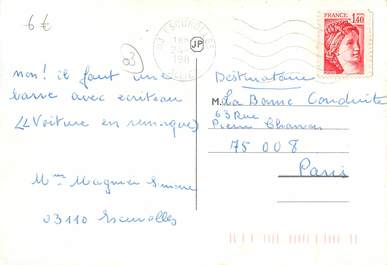 6 €
03 ESCUROLLES
JP
FRANCE
1,40
03
non! il faut une
barre avec écriteau
(Voiture en remorque)
Mme Magnier Simone
03110 Escurolles
Destinataire
M. La Bonne Conduite
63 Rue
Pierre Charron
75 008
Paris